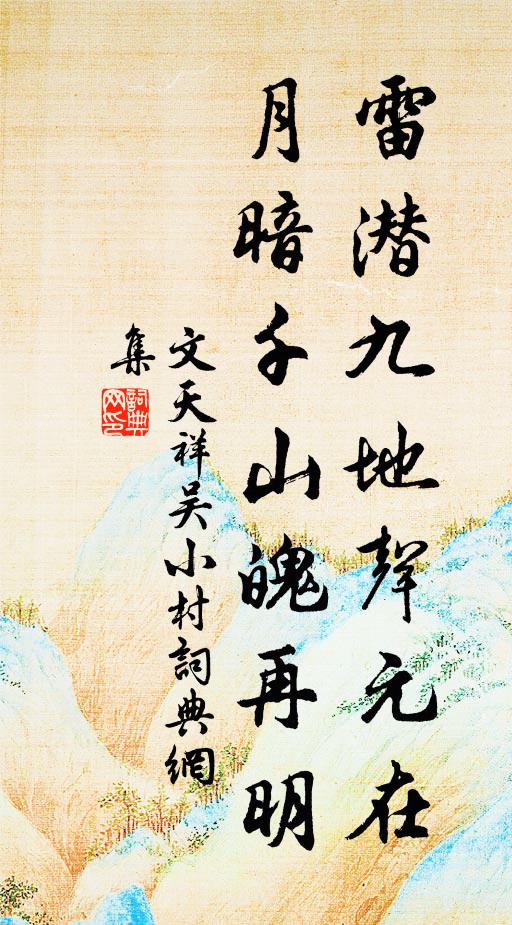 雷潜九地聲元在
月暗千山魄再明
文天祥吴小村詞典網
集
詞典網印